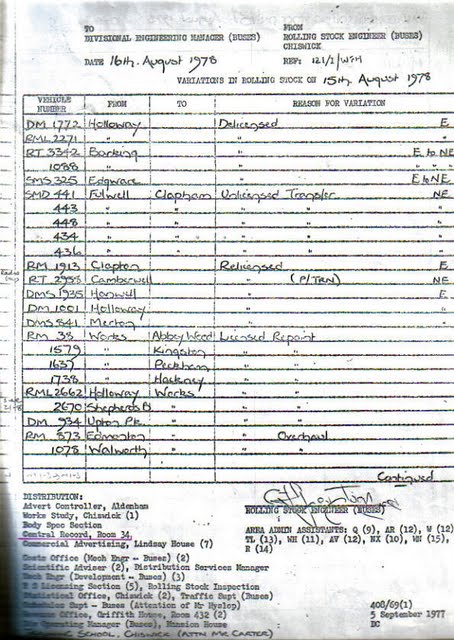 TO
DIVISIONAL ENGINEERING MANAGER (BUSES)
FROM
ROLLING STOCK ENGINEER (BUSES)
CHISWICK
DATE 16th. August 1978
REF: 121/2/WFH
VARIATIONS IN ROLLING STOCK ON 15th. August 1978
VEHICLE NUMBER FROM TO REASON FOR VARIATION
DM 1772 Holloway Delicensed E
RML 2271 " " "
RT 3342 Barking " E to NE
1088 " " "
SMS 325 Edgware " E to NE
SMD 441 Fulwell Clapham Unlicensed Transfer NE
443 " " " " "
448 " " " " "
434 " " " " "
436 " " " " "
RM 1913 Clapton Relicensed E
RT 2958 Camberwell " (P/TRN) NE
DMS 1935 Hanwell " E
DM 1001 Holloway " "
DMS 541 Merton " "
RM 38 Works Abbey Wood Licensed Repaint
1579 " Kingston " "
1637 " Peckham " "
1738 " Hackney " "
RML 2662 Holloway Works " "
2670 Shepherds B " " "
DM 934 Upton Pk. " " "
RM 873 Edmonton " " Overhaul
1078 Walworth " " "
Continued
DISTRIBUTION:
Advert Controller, Aldenham
Works Study, Chiswick (1)
Body Spec Section
Central Record, Room 34,
Commercial Advertising, Lindsay House (7)
Costs Office (Mech Engr - Buses) (2)
Scientific Adviser (2), Distribution Services Manager
Tech Engr (Development - Buses) (3)
Licensing Section (5), Rolling Stock Inspection
Statistical Office, Chiswick (2), Traffic Supt (Buses)
Schedules Supt - Buses (Attention of Mr Hyslop)
Office, Griffith House, Room 432 (2)
Operating Manager (Buses), Mansion House
SCHOOL, CHISWICK (ATTN MR CARTER)
ROLLING STOCK ENGINEER (BUSES)
AREA ADMIN ASSISTANTS: Q (9), AR (12), W (12)
TL (13), WH (11), AV (12), NX (10), WN (15),
R (14)
408/69(1)
5 September 1977
DC